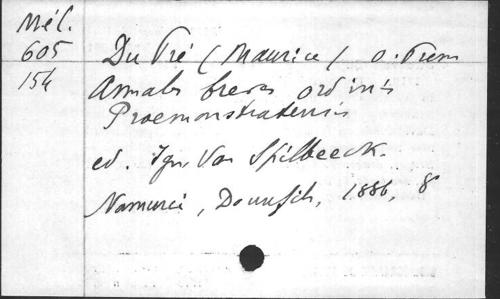 Mél.
605
154
Du Pré (Maurice) O. Prem
Annales breves ordinis
Praemonstratensis
ed. Ign Van Spilbeeck.
Namurci, Doux fils, 1886, 8